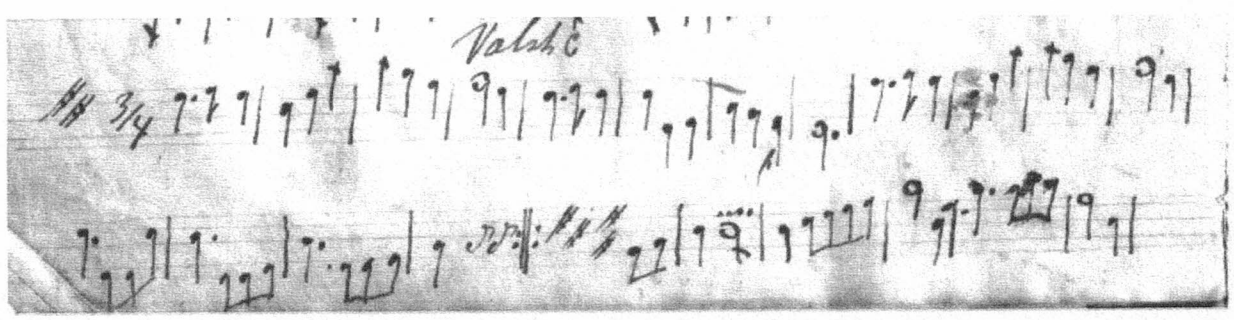 Valsh E
3/4